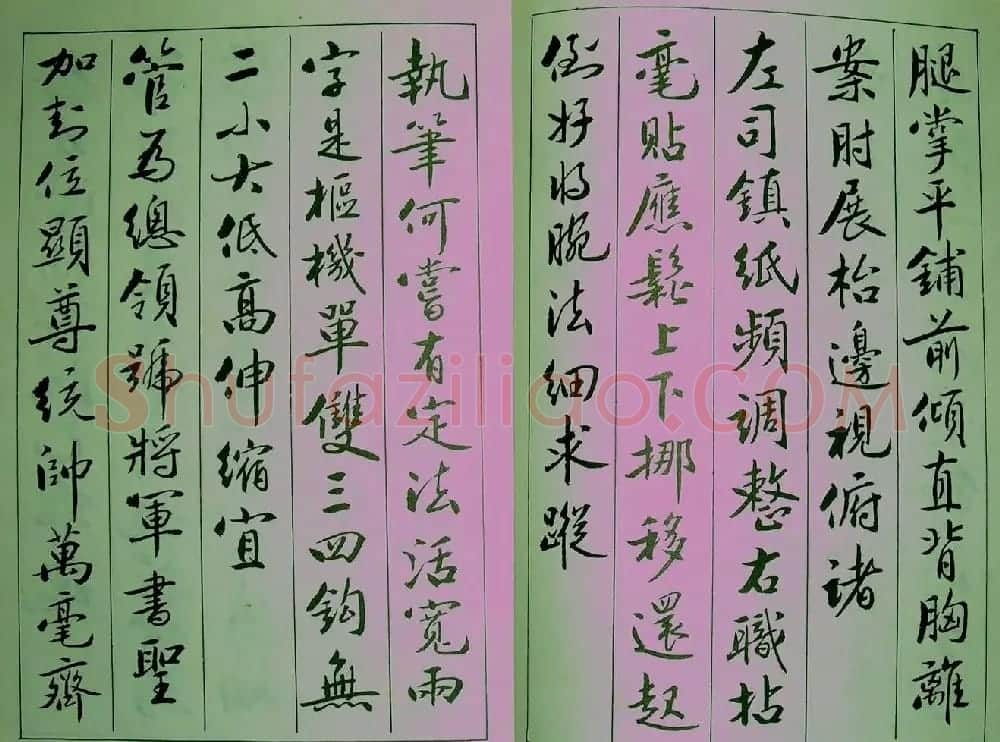 腿掌平鋪前傾直背胸離
案肘展枱邊視俯諸
左司鎮紙頻調整右職拈
毫貼應鬆上下挪移還起
倒好將腕法細求蹤
執筆何嘗有定法活寬兩
字是樞機單雙三四鈎無
二小大低高伸縮宜
管為總領號將軍書聖
加封位顯尊統帥萬毫齊
Shufaziliao.COM